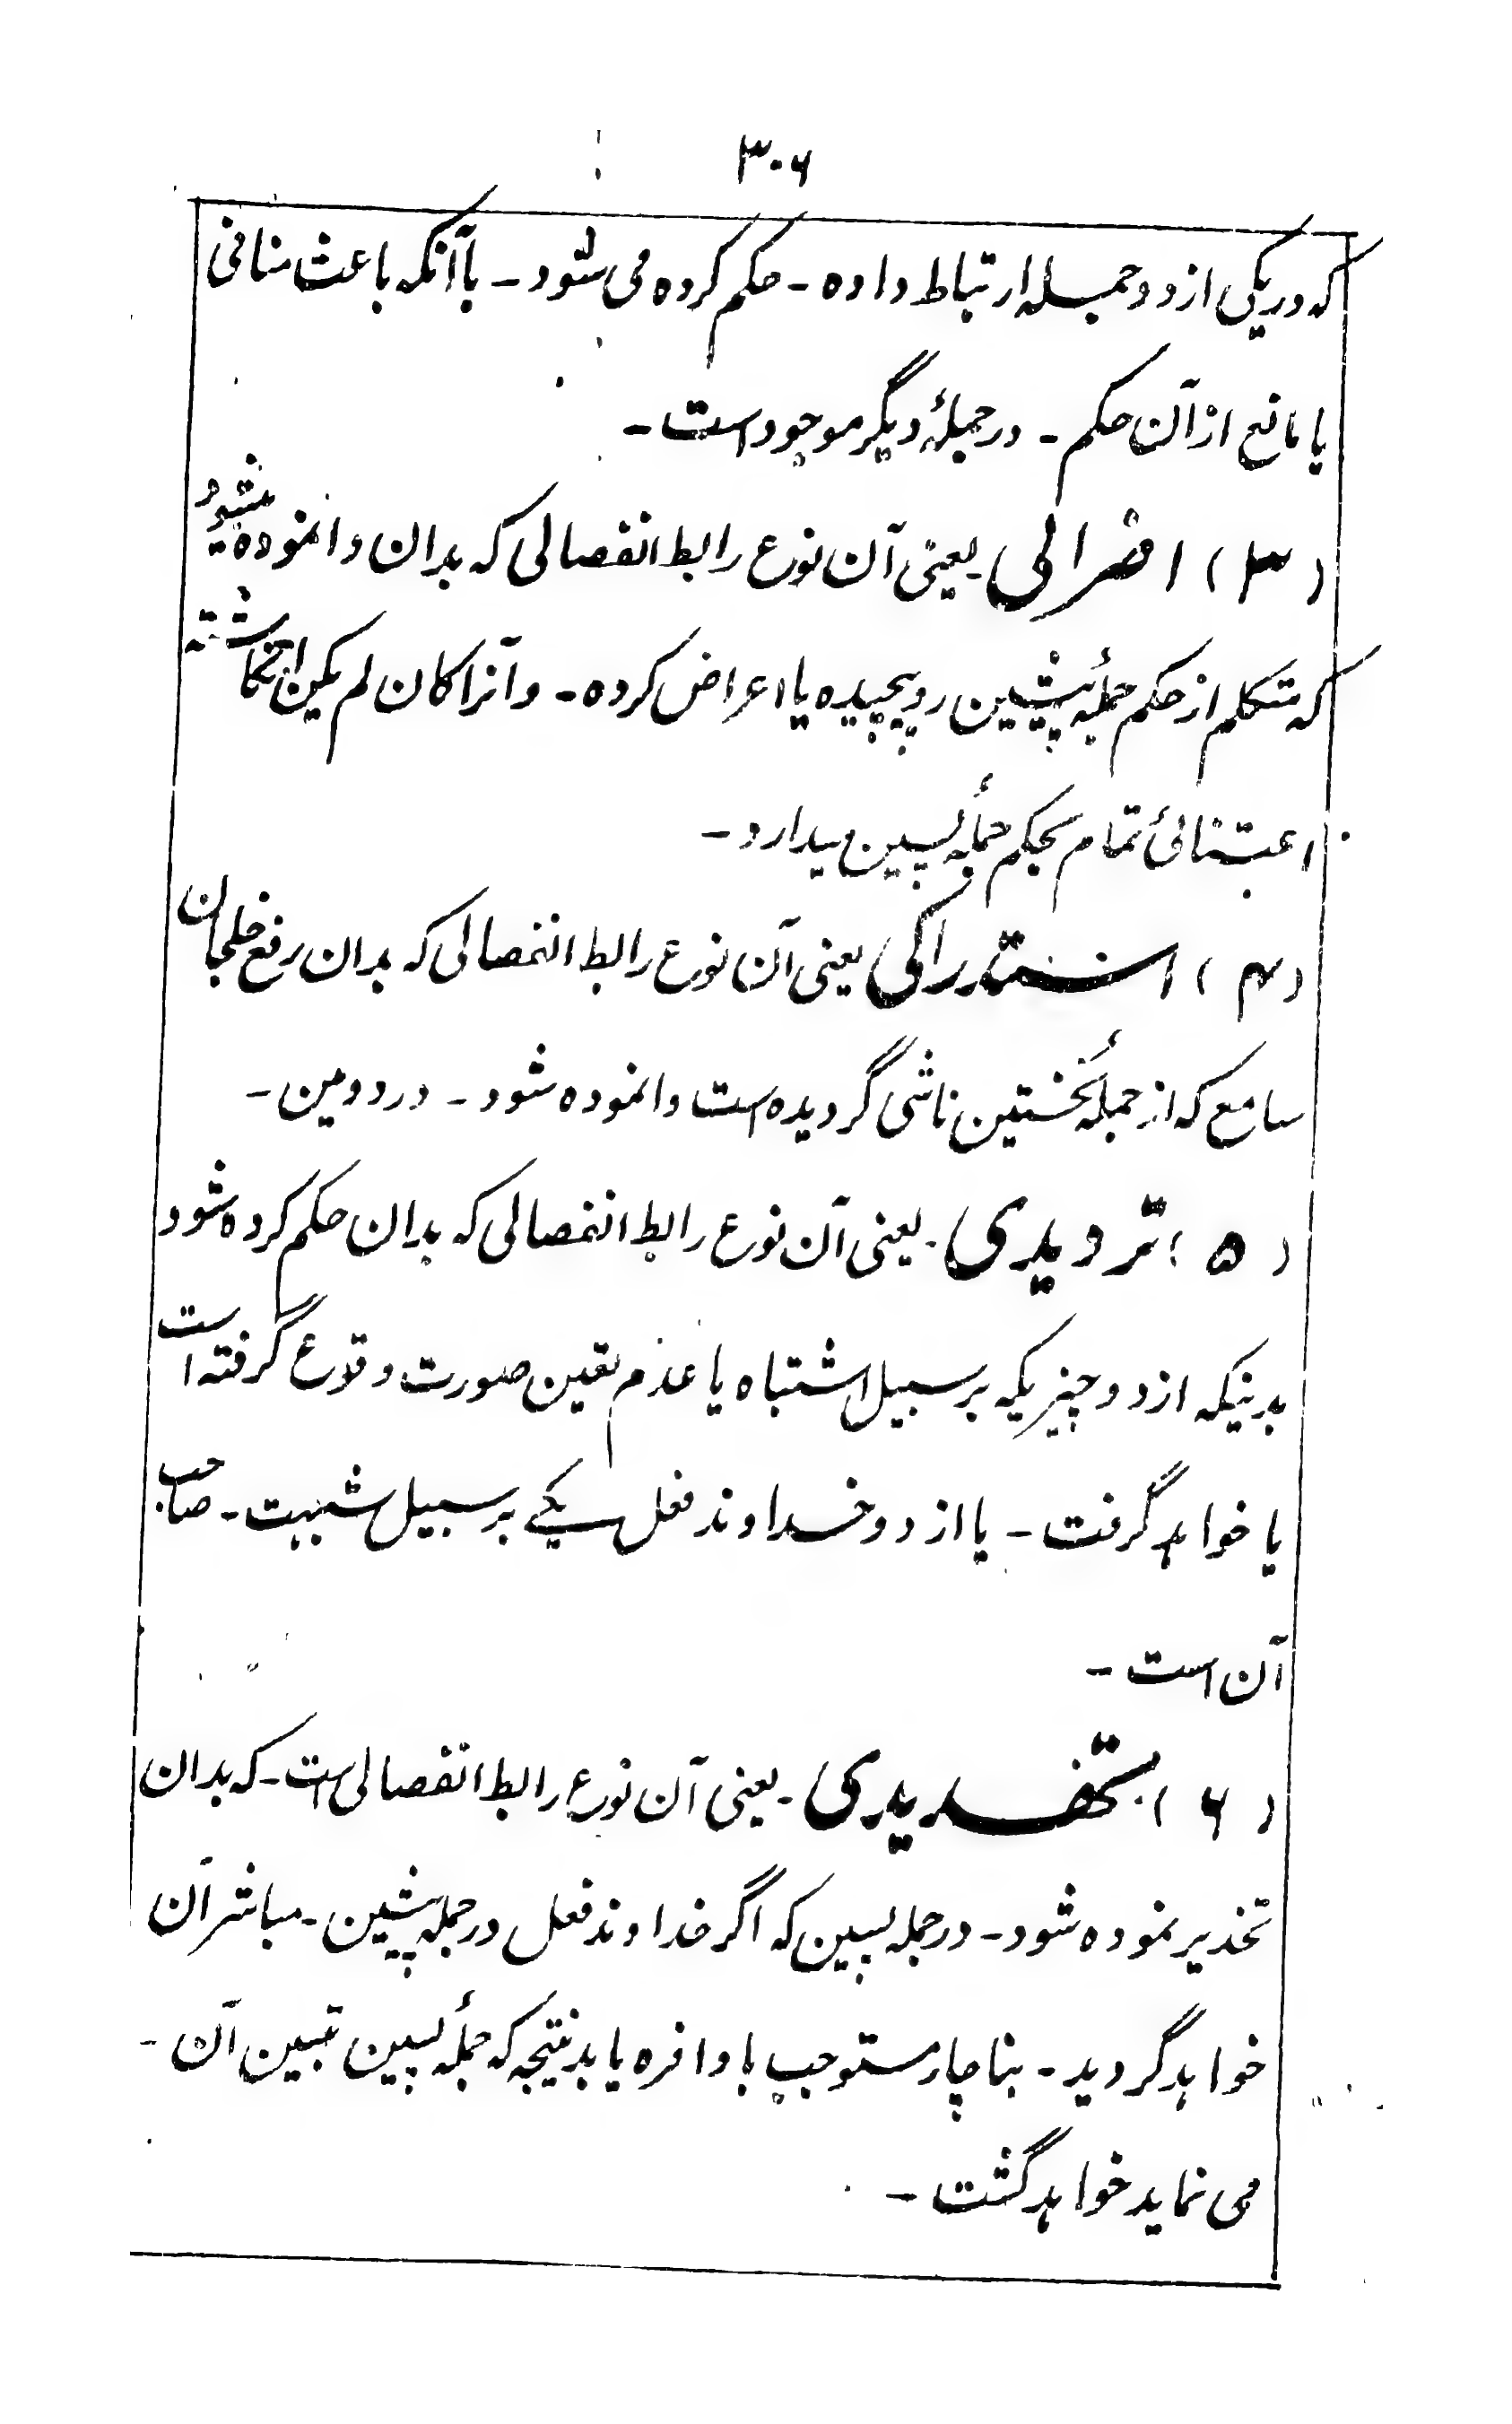 ۳۰۶
که در یکی از دو جمله ارتباط داده - حکم کرده می شود - با آنکه باعث منافی
یا مانع از آن حکم - در جملهٔ دیگر موجود است -
(۳) اضرابی - یعنی آن نوع رابط انفصالی که بدان وانموده میشود
که متکلم از حکم جملهٔ پیشین رو پیچیده یا اعراض کرده - و آنرا کان لم یکن انگاشته
اعتنائی تمام بحکم جملهٔ پسین میدارد -
(۴) استدراکی یعنی آن نوع رابط انفصالی که بدان رفع خلجان
سامع که از جملهٔ نخستین ناشی گردیده است وانموده شود - در دومین -
(۵) تردیدی - یعنی آن نوع رابط انفصالی که بدان حکم کرده شود
بدینکه از دو چیز یکه بر سبیل اشتباه یا عدم یقین صورت وقوع گرفته است
یا خواهد گرفت - یا از دو خداوند فعل یکے بر سبیل شبهت - صاحب
آن است -
(۶) تحذیری - یعنی آن نوع رابط انفصالی است - که بدان
تحذیر نموده شود - در جمله پسین که اگر خداوند فعل در جمله پیشین - مباشر آن
خواهد گردید - بناچار مستوجب باد افره یا بد نتیجه که جملهٔ پسین تبیین آن -
می نماید خواهد گشت -